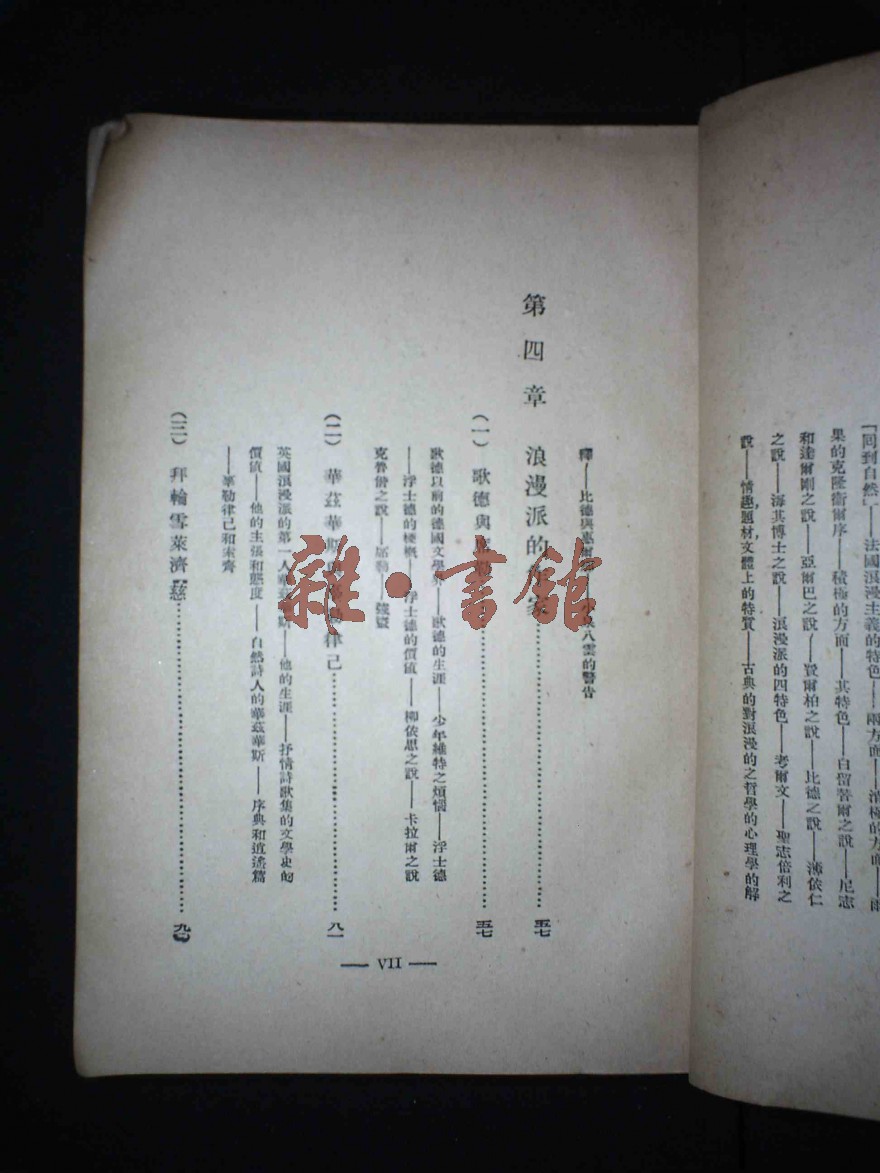 「回到自然」——法國浪漫主義的特色——兩方面——消極的方面——
果的克隆衞爾序——積極的方面——其特色——白留菩爾之說——尼志
和達爾剛之說——亞爾巴之說——費爾柏之說——比德之說——薄依仁
之說——海其博士之說——浪漫派的四特色——考爾文——聖志倍利之
說——情趣題材文體上的特質——古典的對浪漫的之哲學的心理學的解
釋——比德與
八雲的警告
第四章 浪漫派的 五七
(一) 歌德與 五七
歌德以前的德國文學界——歌德的生涯——少年維特之煩惱——浮士德
——浮士德的梗概——浮士德的價値——柳依思之說——卡拉爾之說
之說——席勒——强盜
(二) 華茲華斯 律己 八一
英國浪漫派的第一人華茲華斯——他的生涯——抒情詩歌集的文學史的
價値——他的主張和態度——自然詩人的華茲華斯——序典和逍遙篇
——華勒律己和索齊
(三) 拜輪雪萊濟慈 九
— VII —
雜·書館